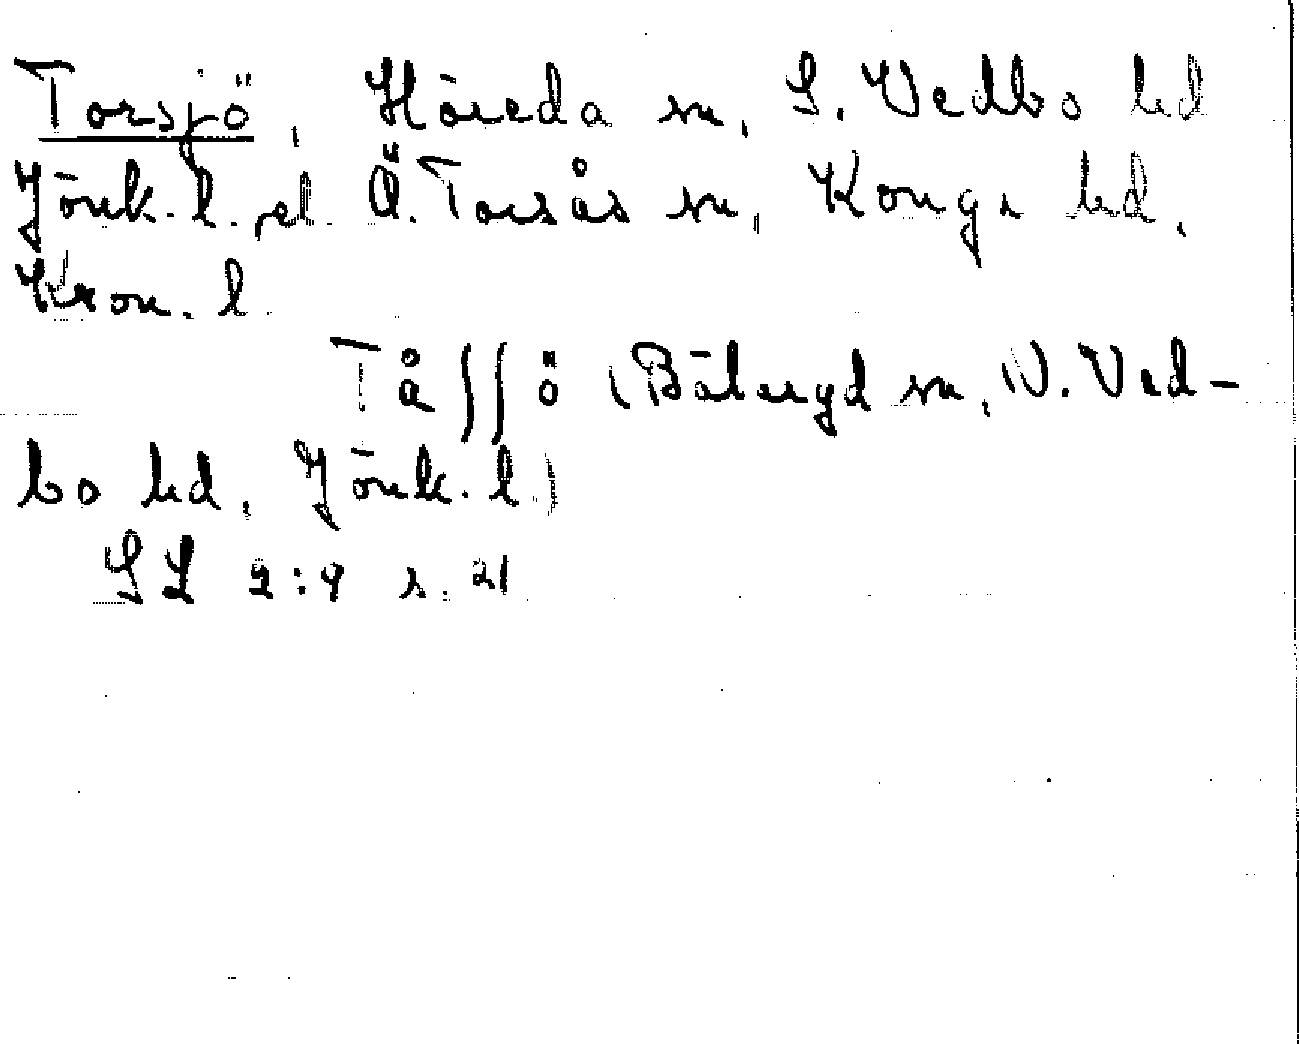 Torsjö, Höreda sn, S. Vedbo hd
Jönk. l. el. Ö. Torsås sn, Konga hd,
Kron. l.
Tåʃʃö (Bälaryd sn, N. Ved-
bo hd, Jönk. l.)
SL 2:4 s. 21